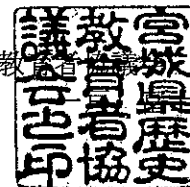 宮城縣歴史
教育者協
議会之印
教育者協議